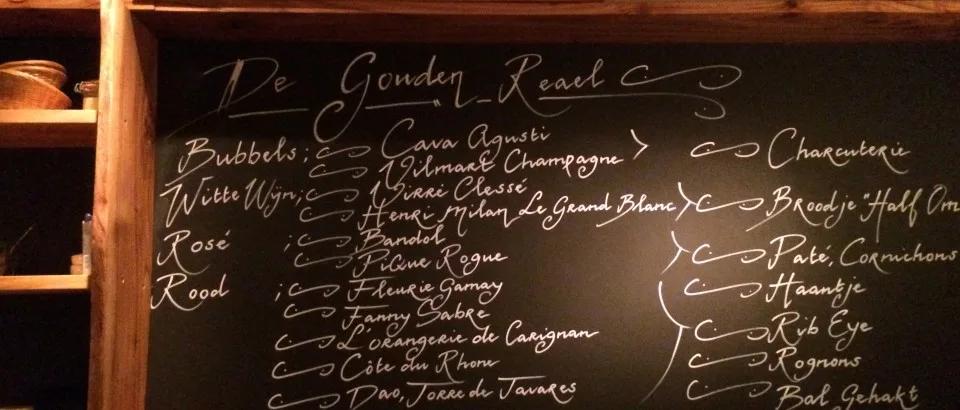 De Gouden Reael
Bubbels: Cava Agusti
Vilmart Champagne
Witte Wijn; Virré Clessé
Henri Milan Le Grand Blanc
Rosé ; Bandol
Pique Rogue
Rood ; Fleurie Gamay
Fanny Sabre
L'orangerie de Carignan
Côte du Rhone
Dao, Torre de Tavares
Charcuterie
Broodje "Half Om
Paté, Cornichons
Haantje
Rib Eye
Rognons
Bal Gehakt